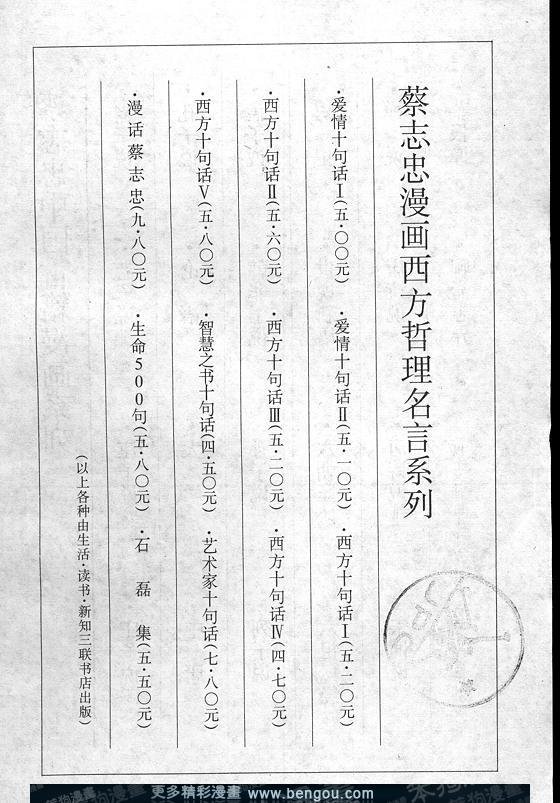 蔡志忠漫画西方哲理名言系列
·爱情十句话Ⅰ(五·〇〇元) ·爱情十句话Ⅱ(五·一〇元) ·西方十句话Ⅰ(五·二〇元)
·西方十句话Ⅱ(五·六〇元) ·西方十句话Ⅲ(五·二〇元) ·西方十句话Ⅳ(四·七〇元)
·西方十句话Ⅴ(五·八〇元) ·智慧之书十句话(四·五〇元) ·艺术家十句话(七·八〇元)
·漫话蔡志忠(九·八〇元) ·生命500句(五·八〇元) ·石磊集(五·五〇元)
(以上各种由生活·读书·新知三联书店出版)
更多精彩漫畫 www.bengou.com